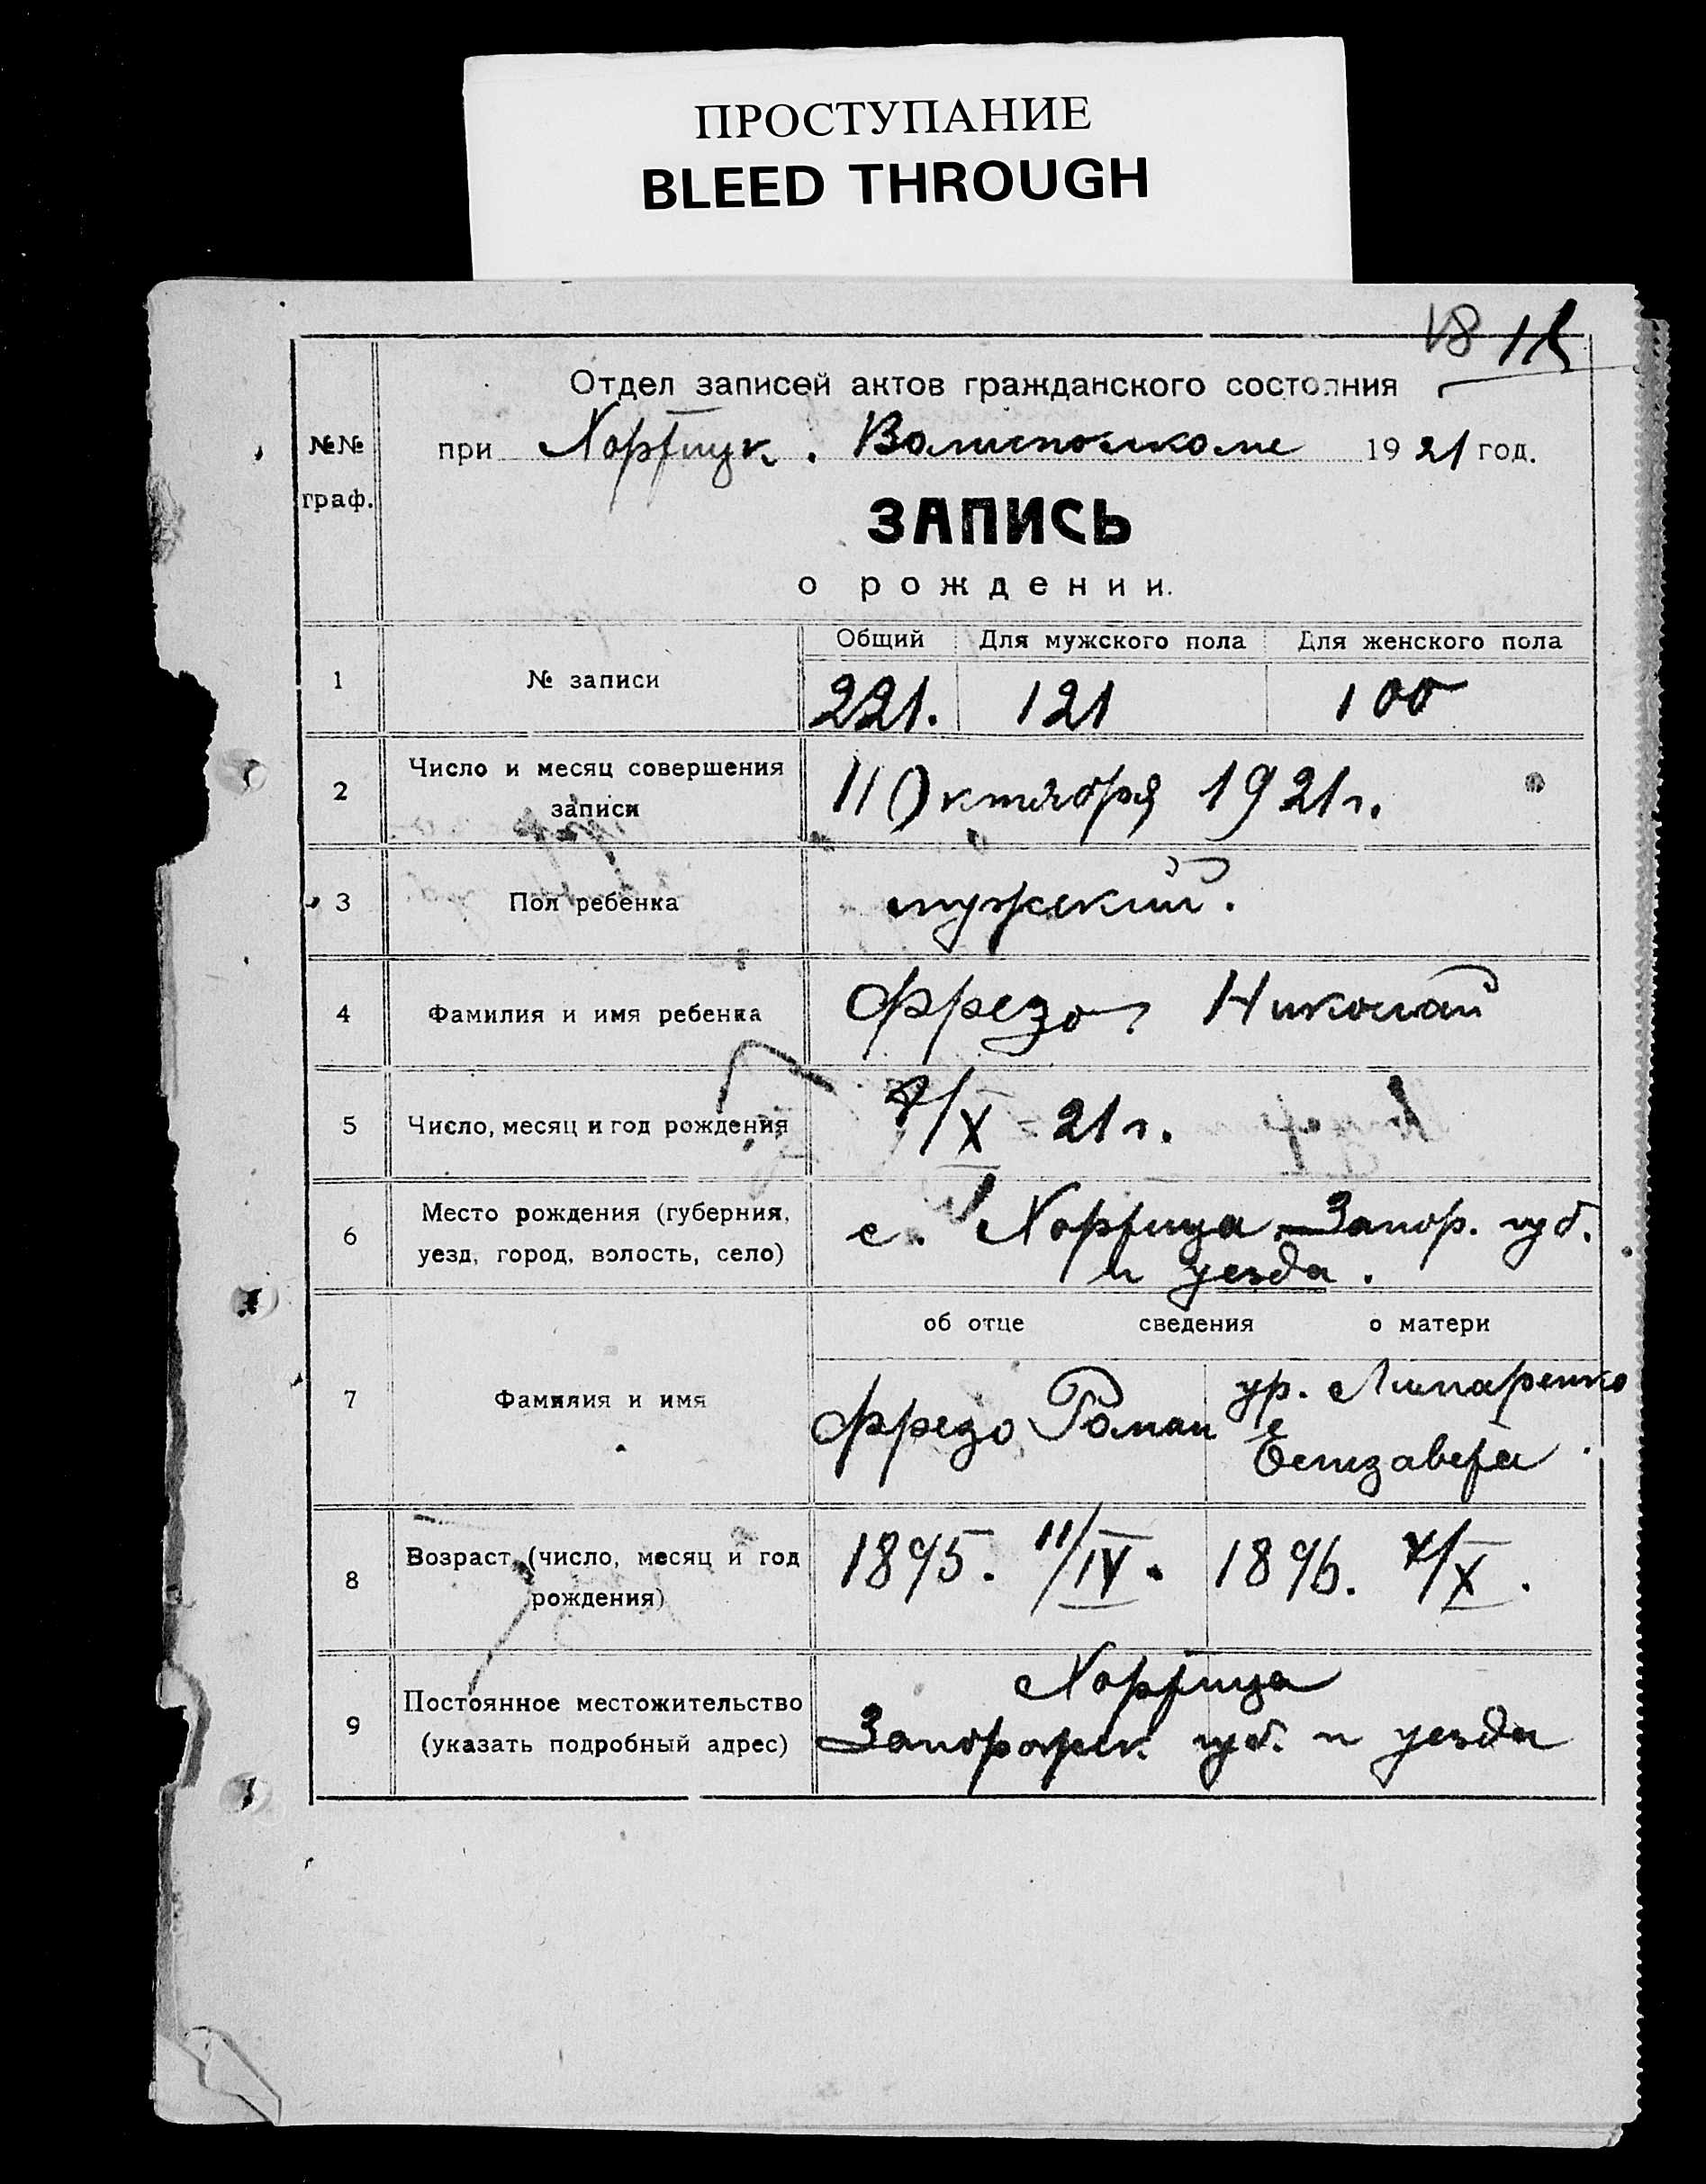 ПРОСТУПАНИЕ
BLEED THROUGH
18
Отдел записей актов гражданского состояния
№№
граф.
при Хортицк. Волисполкоме 1921 год.
ЗАПИСЬ
о рождении.
Общий Для мужского пола Для женского пола
1 № записи 221. 121 100
2 Число и месяц совершения
записи
11 Октября 1921 г.
3 Пол ребенка мужский.
4 Фамилия и имя ребенка Фрезо, Николай
5 Число, месяц и год рождения 7/X - 21 г.
6 Место рождения (губерния,
уезд, город, волость, село)
с. Хортица Запор. губ.
и уезда.
об отце сведения о матери
7 Фамилия и имя
Фрезо Роман
ур. Липаренко
Елизавета
8 Возраст (число, месяц и год
рождения)
1895. 11/IV. 1896. 4/X.
9 Постоянное местожительство
(указать подробный адрес)
Хортица
Запорожск. губ. и уезда